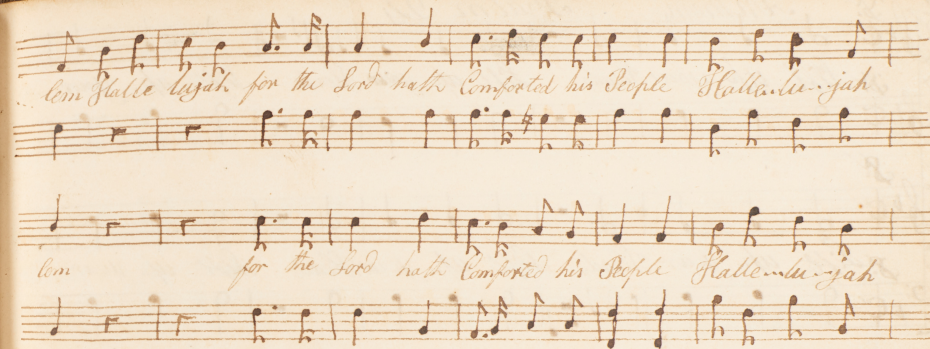 lem Halle lujah for the Lord hath Comforted his People Halle--lu--jah
lem for the Lord hath Comforted his People Halle--lu--jah